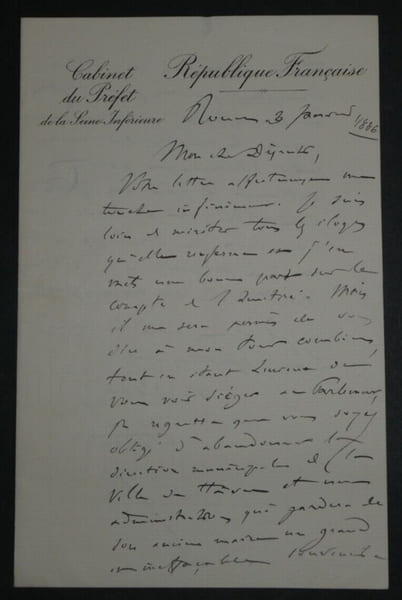 Cabinet
du Préfet
de la Seine-Inférieure
République Française
Rouen 23 Janvier
1886
Mon cher Député,
Votre lettre affectueuse me
touche infiniment. Je suis
loin de mériter tous les éloges
qu'elle renferme et j'en
mets une bonne part sur le
compte de l'amitié. Mais
il me sera permis de vous
dire à mon tour combien,
tout en étant heureux de
vous voir siéger au Parlement,
je regrette que vous soyez
obligé d'abandonner la
direction municipale de la
Ville du Havre et une
administration qui gardera de
son ancien maire un grand
et ineffaçable souvenir